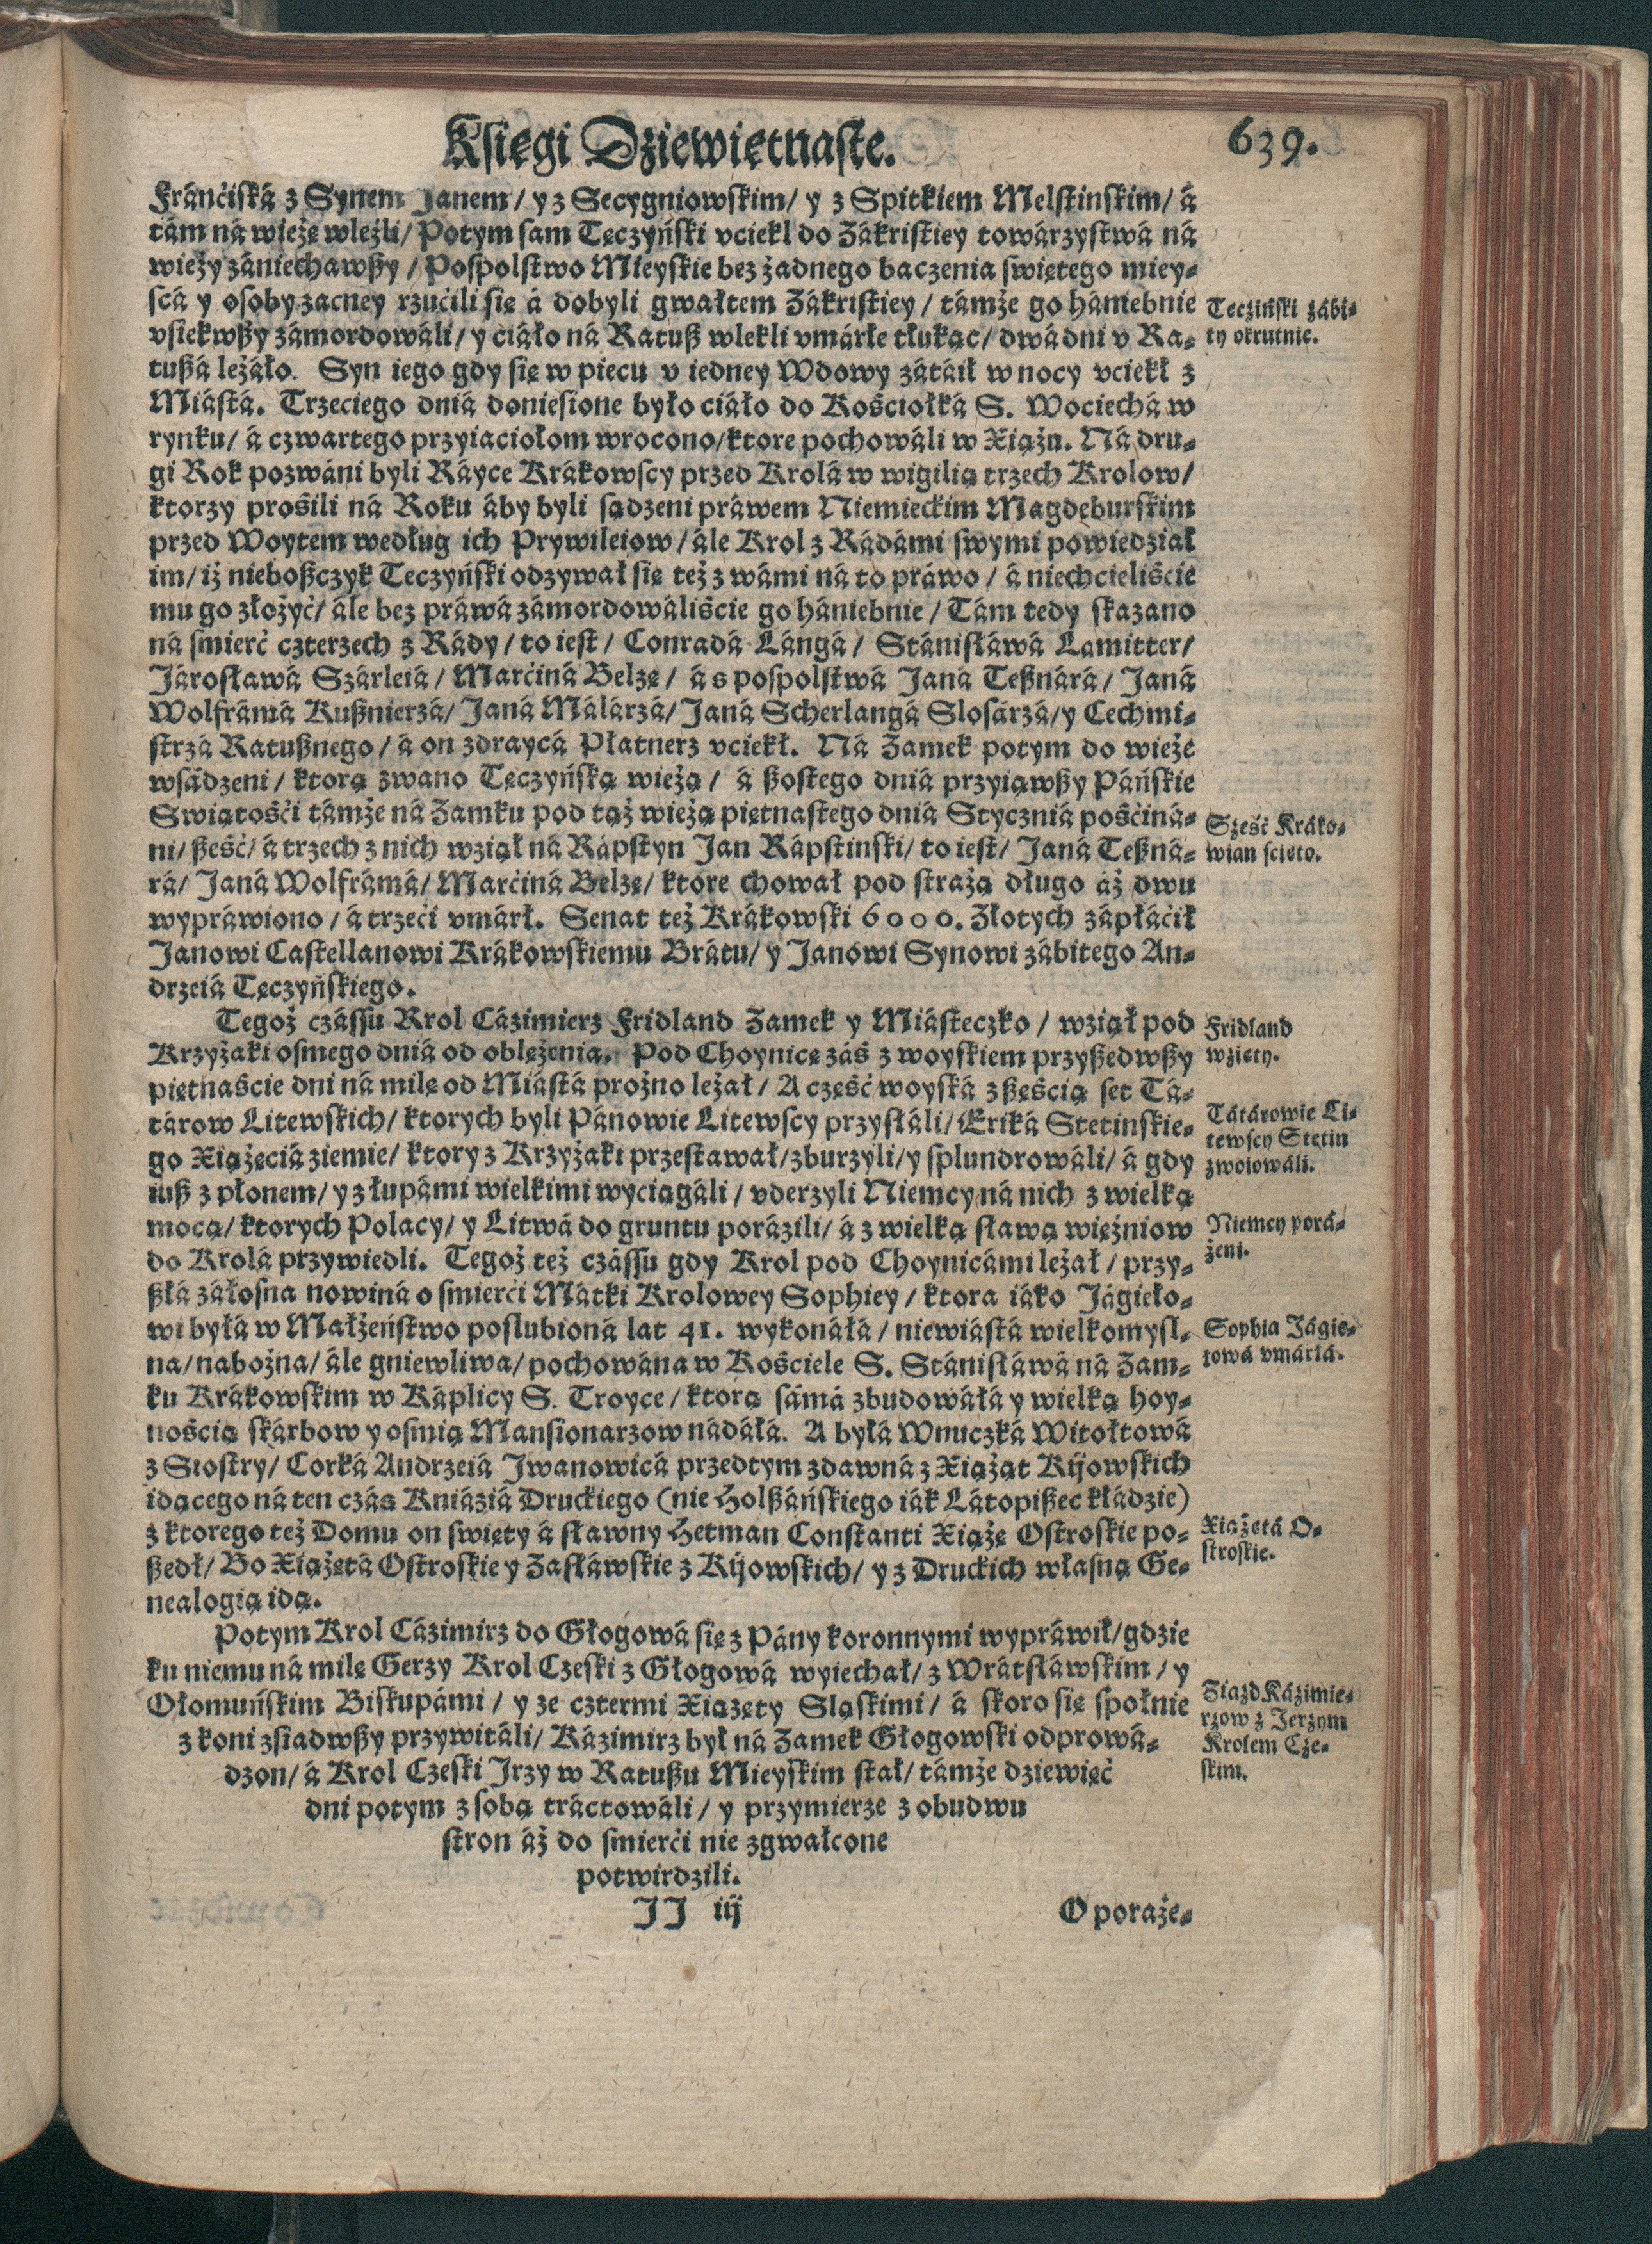 Księgi Dziewiętnaste.
639.
Fránciská z Synem Janem / y z Secygniowskim / y z Spitkiem Melstinskim / á
tám ná wieżę wleźli / Potym sam Tęczyński vciekl do Zákristiey towárzystwá ná
wieży zániechawßy / Pospolstwo Mieyskie bez żadnego baczenia swiętego miey⸗
scá y osoby zacney rzućili się á dobyli gwałtem Zákristiey / támże go hániebnie
vsiekwßy zámordowáli / y ćiáło ná Ratuß wlekli vmárłe tłukąc / dwá dni v Ra⸗
tußá leżáło. Syn iego gdy się w piecu v iedney Wdowy zátáił w nocy vciekł z
Miástá. Trzeciego dniá doniesione było ciáło do Kośćiołká S. Wociechá w
rynku / á czwartego przyiaciołom wrocono / ktore pochowáli w Xiążu. Ná dru⸗
gi Rok pozwáni byli Ráyce Krákowscy przed Krolá w wigilią trzech Krolow /
ktorzy prośili ná Roku áby byli sądzeni práwem Niemieckim Magdeburskim
przed Woytem według ich Prywileiow / ále Krol z Rádámi swymi powiedział
im / iż nieboßczyk Teczyński odzywał się też z wámi ná to práwo / á niechcieliście
mu go złożyć / ále bez práwá zámordowáliście go hániebnie / Tám tedy skazano
ná smierć czterzech z Rády / to iest / Conradá Lángá / Stánisłáwá Lamitter /
Járosławá Szárleiá / Marćiná Belzę / á s pospolstwá Janá Teßnárá / Janá
Wolfrámá Kußnierzá / Janá Málárzá / Janá Scherlangá Slosárzá / y Cechmi⸗
strzá Ratußnego / á on zdraycá Płatnerz vciekł. Ná Zamek potym do wieże
wsádzeni / ktorą zwano Tęczyńską wieżą / á ßostego dniá przyiąwßy Páńskie
Swiątośći támże ná Zamku pod tąż wieżą piętnastego dniá Styczniá pośćiná⸗
ni / ßeść / á trzech z nich wziął ná Rápstyn Jan Rápstinski / to iest / Janá Teßná⸗
rá / Janá Wolfrámá / Marćiná Belzę / ktore chował pod strażą długo áż dwu
wypráwiono / á trzeći vmárł. Senat też Krákowski 6000. Złotych zápłáćił
Janowi Castellanowi Krákowskiemu Brátu / y Janowi Synowi zábitego An⸗
drzeiá Tęczyńskiego.
Tegoż czássu Krol Cázimierz Fridland Zamek y Miásteczko / wziął pod
Krzyżaki osmego dniá od oblężenia. Pod Choynicę záś z woyskiem przyßedwßy
piętnaście dni ná milę od Miástá prożno leżał / A część woyská z ßeścią set Tá⸗
tárow Litewskich / ktorych byli Pánowie Litewscy przysłáli / Eriká Stetinskie⸗
go Xiążęciá ziemie / ktory z Krzyżaki przestawał / zburzyli / y splundrowáli / á gdy
iuß z płonem / y z łupámi wielkimi wyciągáli / vderzyli Niemcy ná nich z wielką
mocą / ktorych Polacy / y Litwá do gruntu porázili / á z wielką sławą więźniow
do Krolá przywiedli. Tegoż też czássu gdy Krol pod Choynicámi leżał / przy⸗
ßłá záłosna nowiná o smierći Mátki Krolowey Sophiey / ktora iáko Jágieło⸗
wi byłá w Małżeństwo poslubioná lat 41. wykonáłá / niewiástá wielkomysl⸗
na / nabożna / ále gniewliwa / pochowána w Kościele S. Stánisłáwá ná Zam⸗
ku Krákowskim w Káplicy S. Troyce / ktorą sámá zbudowáłá y wielką hoy⸗
nością skárbow y osmią Mansionarzow nádáłá. A byłá Wnuczká Witołtowá
z Siostry / Corká Andrzeiá Jwanowicá przedtym zdawná z Xiążąt Kijowskich
idącego ná ten czás Kniáziá Druckiego (nie Holßáńskiego iák Látopißec kłádzie)
z ktorego też Domu on swięty á sławny Hetman Constanti Xiążę Ostroskie po⸗
ßedł / Bo Xiążętá Ostroskie y Zasłáwskie z Kijowskich / y z Druckich własną Ge⸗
nealogią idą.
Potym Krol Cázimirz do Głogowá się z Pány koronnymi wypráwił / gdzie
ku niemu ná milę Gerzy Krol Czeski z Głogowá wyiechał / z Wrátsłáwskim / y
Ołomuńskim Biskupámi / y ze cztermi Xiążęty Sląskimi / á skoro się społnie
z koni zsiadwßy przywitáli / Kázimirz był ná Zamek Głogowski odprowá⸗
dzon / á Krol Czeski Jrzy w Ratußu Mieyskim stał / támże dziewięć
dni potym z sobą tráctowáli / y przymierze z obudwu
stron áż do smierći nie zgwałcone
potwirdzili.
JJ iij
O poraże⸗
Teczinski zábi⸗
ty okrutnie.
Sześć Kráko⸗
wian scieto.
Fridland
wzięty.
Tátárowie Li⸗
tewscy Stetin
zwoiowáli.
Niemcy porá⸗
żeni.
Sophia Jágie⸗
łowá vmárłá.
Xiążętá O⸗
stroskie.
Ziazd Kázimie⸗
rzow z Jerzym
Krolem Cze⸗
skim.